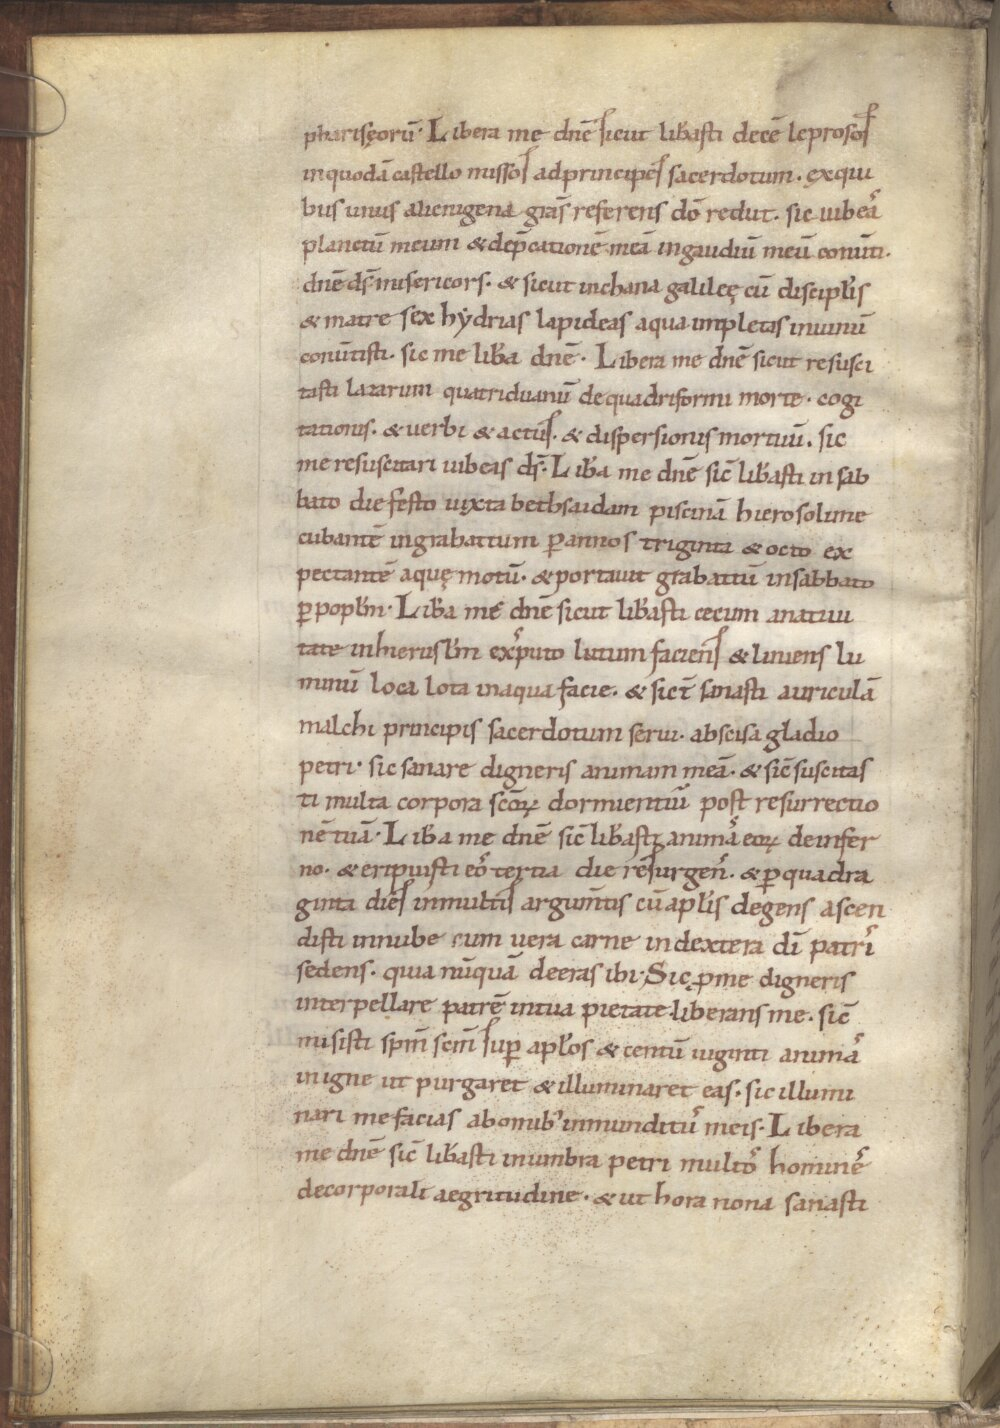 pharisęorū· Libera me dnē sicut lib̄asti decē leprosos
inquodā castello missos adprincipes sacerdotum. ęxqui
bus unus alienigena grās referens dō rediit. sic iubeas
planctū meum & dep̄cationē meā ingaudiū meū conūti.
dnē ds̄ misericors. & sicut inchana galileę cū discipl̄is
& matre sex hẏdrias lapideas aqua impletas inuinū
conūtisti. sic me lib̄a dnē. Libera me dnē sicut resusci
tasti lazarum quatriduanū dequadriformi morte. cogi
tationis. & uerbi & actus. & dispersionis mortuū. sic
me resuscitari iubeas ds̄. Lib̄a me dnē sic̄ lib̄asti insab
bato die festo iuxta bethsaidam piscinā hierosolime
cubantē ingrabattum ꝑannos triginta & octo ex
pectantē aquę motū. & portauit grabattū insabbato
ꝑ popl̄m. Lib̄a me dnē sicut lib̄asti cecum anatiui
tate inhierusl̄m exsputo lutum faciens & liniens lu
minū loca lota inaqua facie. & sic̄ sanasti auriculā
malchi principis sacerdotum serui. abscisa gladio
petri. sic sanare digneris animam meā. & sic̄ suscitas
ti multa corpora scōꝝ dormientiū post resurrectio
nē tuā. Lib̄a me dnē sic̄ lib̄asti animas eoꝝ deinfer
no. & eripuisti eos tertia die resurgens. & ꝑquadra
ginta dies inmultis argum̄tis cū apl̄is degens ascen
disti innube cum uera carne indextera dī patris
sedens. quia nūquā deeras ibi. Sic ꝓme digneris
interpellare patrē intua pietate liberans me. sic̄
misisti sp̄m sc̄m suꝑ apl̄os & centū uiginti animas
inigne ut purgaret & illuminaret eas. sic illumi
nari me facias abomnib' inmunditiis meis. Libera
me dnē sic̄ lib̄asti inumbra petri multos homines
decorporali aegritudine. & ut hora nona sanasti